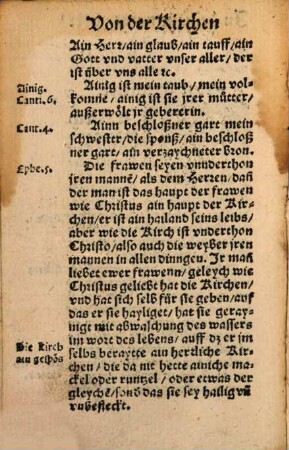 Von der Kirchen
Ain Herr/ain glaub/ain tauff/ain
Gott vnd vatter vnser aller/der
ist über vns alle ꝛc.
Ainig.
Canti. 6.
Ainig ist mein taub/mein vol-
komne/ainig ist sie jrer můtter/
außerwölt jr gebererin.
Cant. 4.
Ainn beschloßner gart mein
schwester/die sponß/ain beschloß
ner gart/ain verzaychneter Bron.
Ephe. 5.
Die frawen seyen vnnderthon
jren mannē/als dem Herren/dañ
der man ist das haupt der frawen
wie Christus ain haupt der Kir-
chen/er ist ain hailand seins leibs/
aber wie die Kirch ist vnderthon
Christo/also auch die weyber jren
mannen in allen dinngen. Jr mañ
liebet ewer frawenn/geleych wie
Christus geliebt hat die Kirchen/
vnd hat sich selb für sie geben/auf
das er sie hayliget/hat sie geray-
nigt mit abwaschung des wassers
im wort des lebens/auff dz er im
Die Kirch
ain gespōs
selbs beraytte ain herrliche Kir-
chen/die da nit hette ainiche ma-
ckel oder runtzel/oder etwas der
gleychē/sond das sie sey hailig vñ
vnbefleckt.